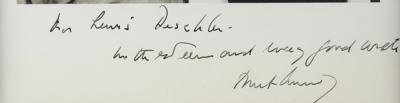 For Lewis Deschler -
with esteem and every good wish